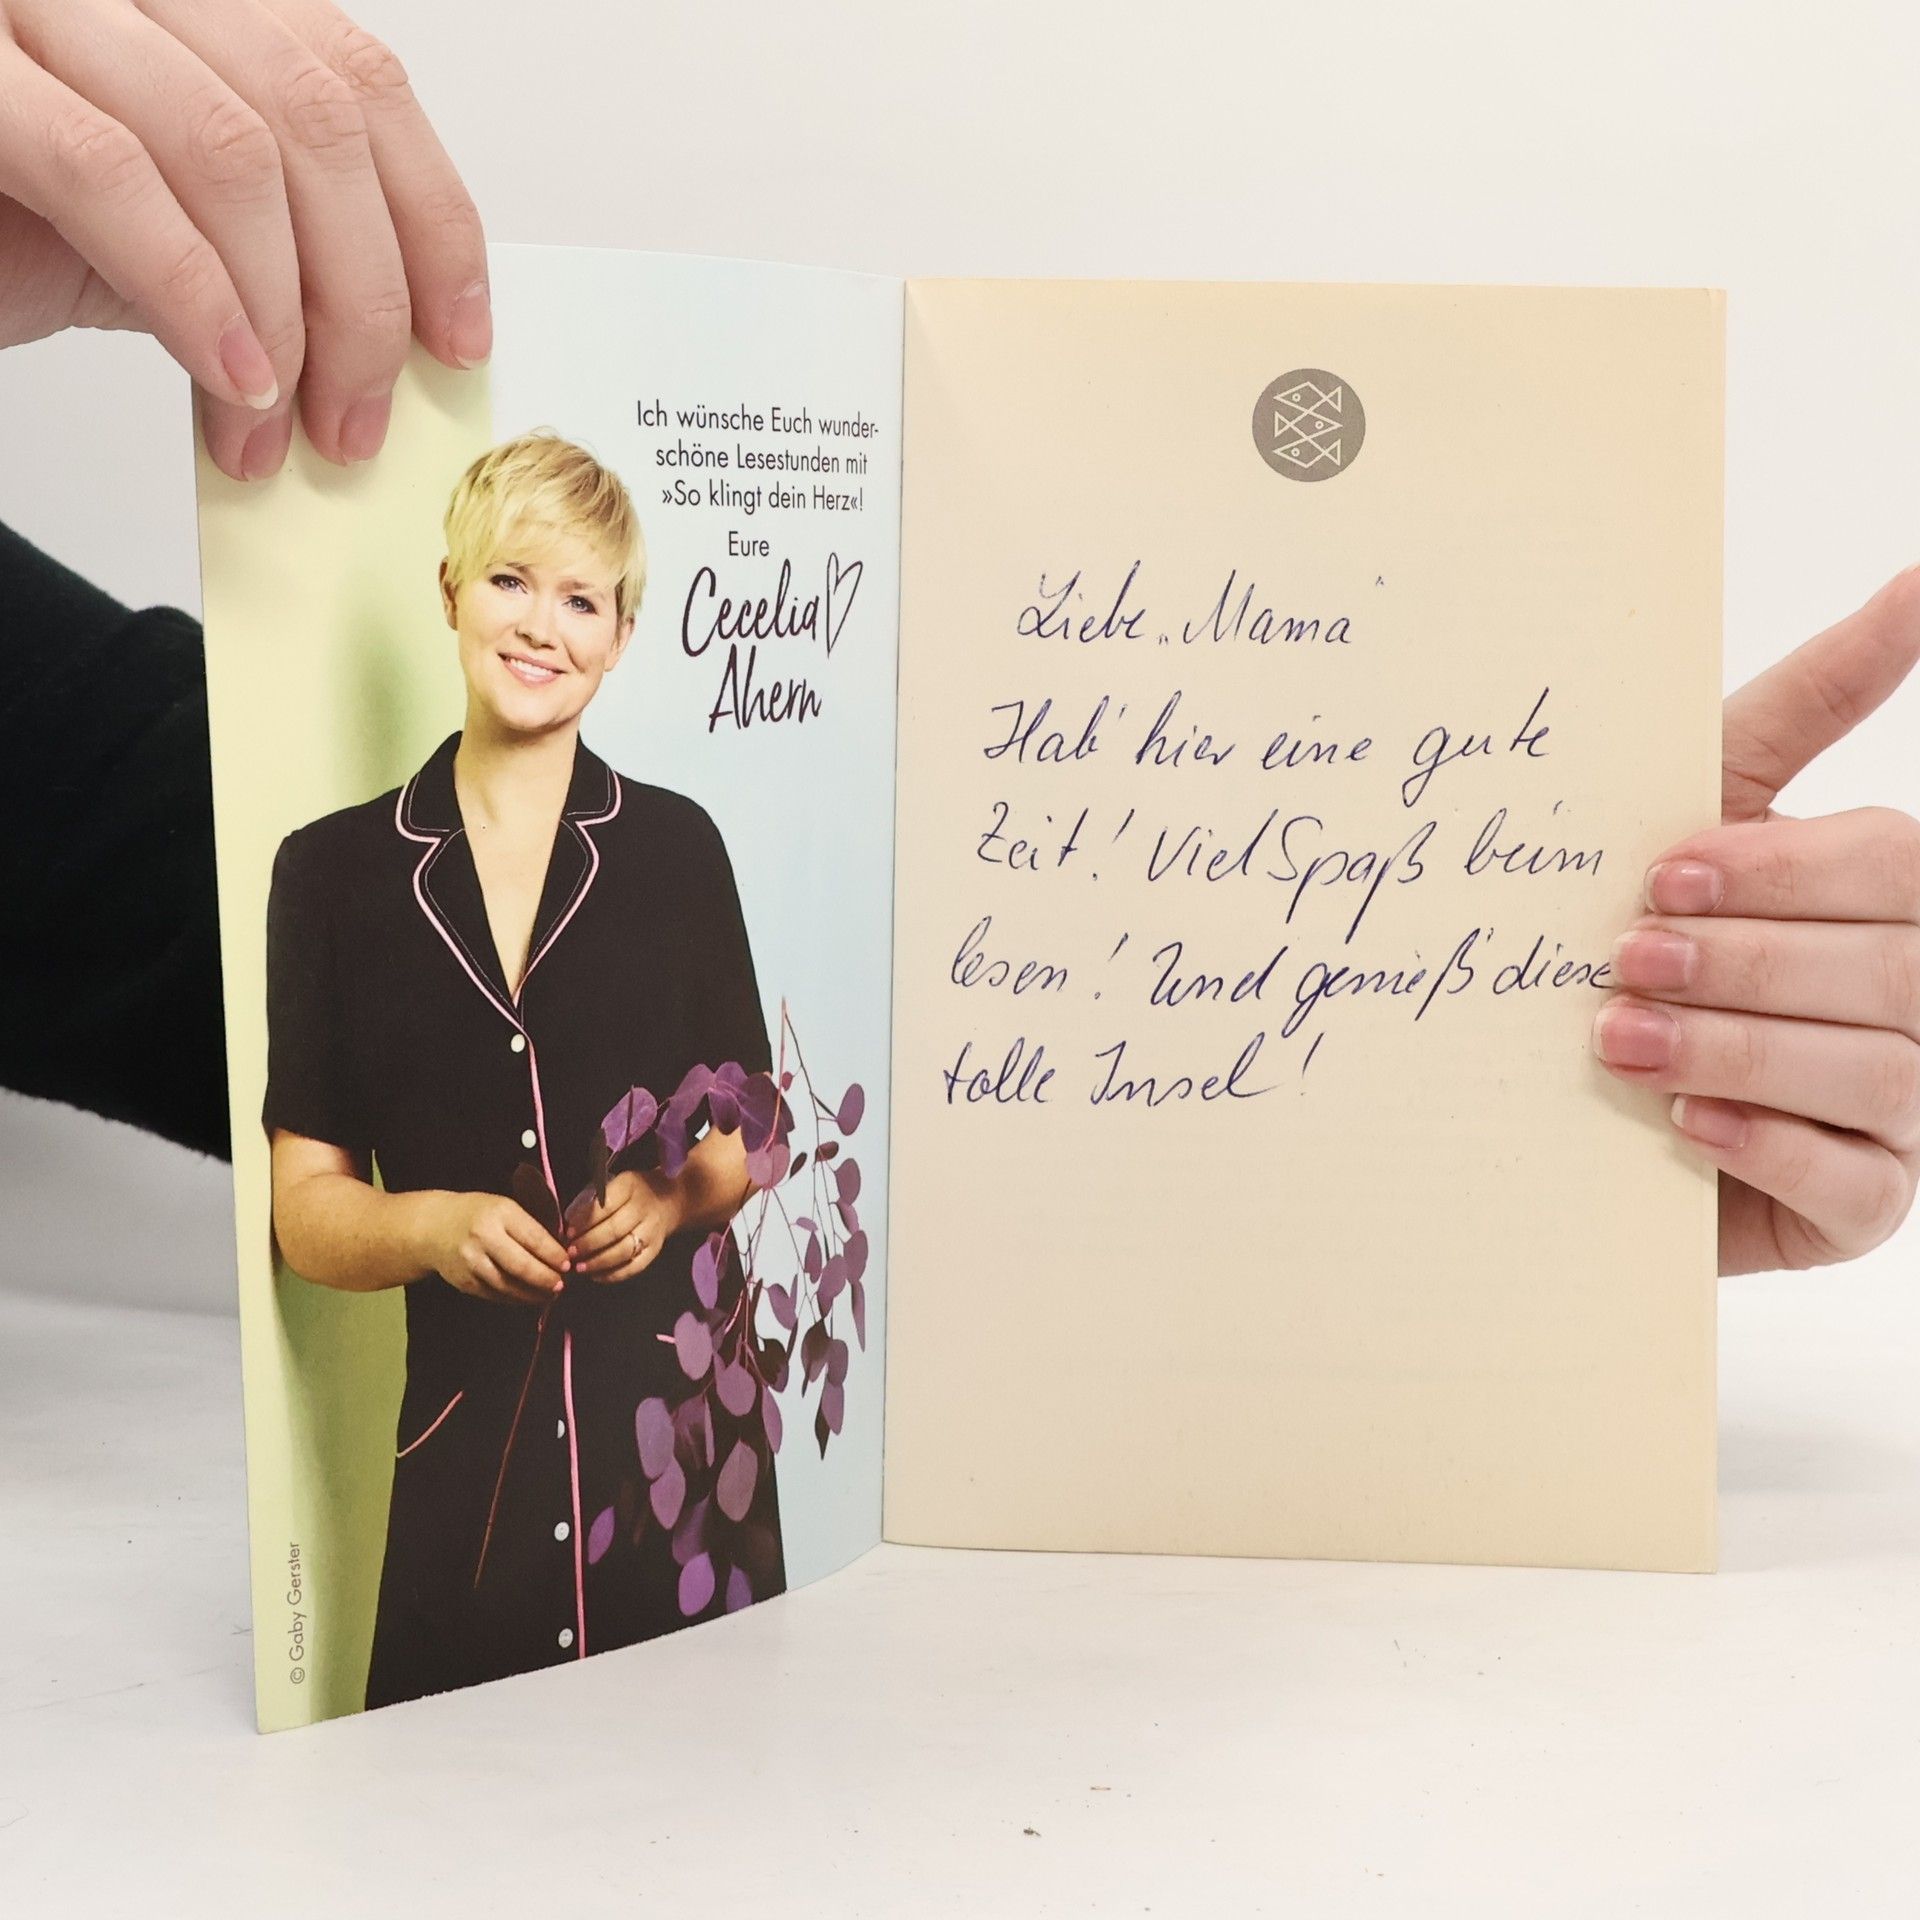 Ich wünsche Euch wunder-
schöne Lesestunden mit
»So klingt dein Herz«!
Eure
Cecelia
Ahern
© Gaby Gerster
Liebe „Mama“
Hab' hier eine gute
Zeit! Viel Spaß beim
lesen! Und genieß' diese
tolle Insel!